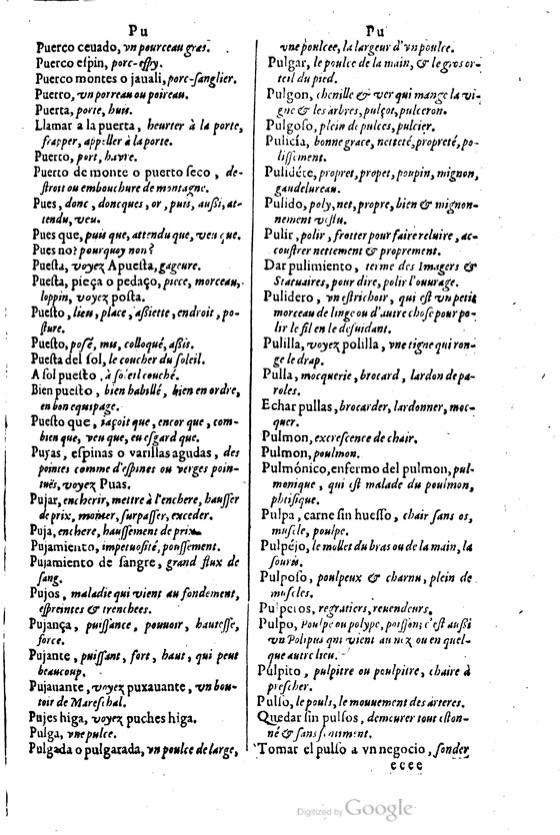 Pu
Puerco ceuado, vn pourceau gras.
Puerco espin, porc-espy.
Puerco montes o jauali, porc-sanglier.
Puerro, vn porreau ou poireau.
Puerta, porte, huis.
Llamar a la puerta, heurter à la porte,
frapper, appeller à la porte.
Puerto, port, havre.
Puerto de monte o puerto seco, de-
stroit ou embouchure de montagne.
Pues, donc, doncques, or, puis, aussi, at-
tendu, veu.
Pues que, puis que, attendu que, veu que.
Pues no? pourquoy non?
Puesta, voyez Apuesta, gageure.
Puesta, pieça o pedaço, piece, morceau,
loppin, voyez posta.
Puesto, lieu, place, assiette, endroit, po-
sture.
Puesto, posé, mis, colloqué, assis.
Puesta del sol, le coucher du soleil.
A sol puesto, à soleil couché.
Bien puesto, bien habillé, bien en ordre,
en bon equipage.
Puesto que, jaçoit que, encor que, com-
bien que, veu que, eu esgard que.
Puyas, espinas o varillas agudas, des
pointes comme d'espines ou verges poin-
tuës, voyez Puas.
Pujar, encherir, mettre à l'enchere, hausser
de prix, monter, surpasser, exceder.
Puja, enchere, haussement de prix.
Pujamiento, impetuosité, poussement.
Pujamiento de sangre, grand flux de
sang.
Pujos, maladie qui vient au fondement,
espreintes & trenchees.
Pujança, puissance, pouuoir, hautesse,
force.
Pujante, puissant, fort, haut, qui peut
beaucoup.
Pujauante, voyez puxauante, vn bou-
toir de Mareschal.
Pujes higa, voyez puches higa.
Pulga, vne pulce.
Pulgada o pulgarada, vn poulce de large,
Pu
vne poulcee, la largeur d'vn poulce.
Pulgar, le poulce de la main, & le gros or-
teil du pied.
Pulgon, chenille & ver qui mange la vi-
gne & les arbres, pulçot, pulceron.
Pulgoso, plein de pulces, pulcier.
Pulicía, bonne grace, netteté, propreté, po-
lissement.
Pulidéte, propret, propet, poupin, mignon,
gaudelureau.
Pulido, poly, net, propre, bien & mignon-
nement vestu.
Pulir, polir, frotter pour faire reluire, ac-
coustrer nettement & proprement.
Dar pulimiento, terme des Imagers &
Statuaires, pour dire, polir l'ouurage.
Pulidero, vn estrichoir, qui est vn petit
morceau de linge ou d'autre chose pour po-
lir le fil en le deuidant.
Pulilla, voyez polilla, vne tigne qui ron-
ge le drap.
Pulla, mocquerie, brocard, lardon de pa-
roles.
Echar pullas, brocarder, lardonner, moc-
quer.
Pulmon, excrescence de chair.
Pulmon, poulmon.
Pulmónico, enfermo del pulmon, pul-
monique, qui est malade du poulmon,
phtisique.
Pulpa, carne sin huesso, chair sans os,
muscle, poulpe.
Pulpéjo, le mollet du bras ou de la main, la
souris.
Pulposo, poulpeux & charnu, plein de
muscles.
Pulperos, regratiers, reuendeurs.
Pulpo, Poulpe ou polype, poisson; c'est aussi
vn Polipus qui vient au nez ou en quel-
que autre lieu.
Púlpito, pulpitre ou poulpitre, chaire à
prescher.
Pulso, le pouls, le mouuement des arteres.
Quedar sin pulsos, demeurer tout eston-
né & sans sentiment.
Tomar el pulso a vn negocio, sonder
eeee
Digitized by Google